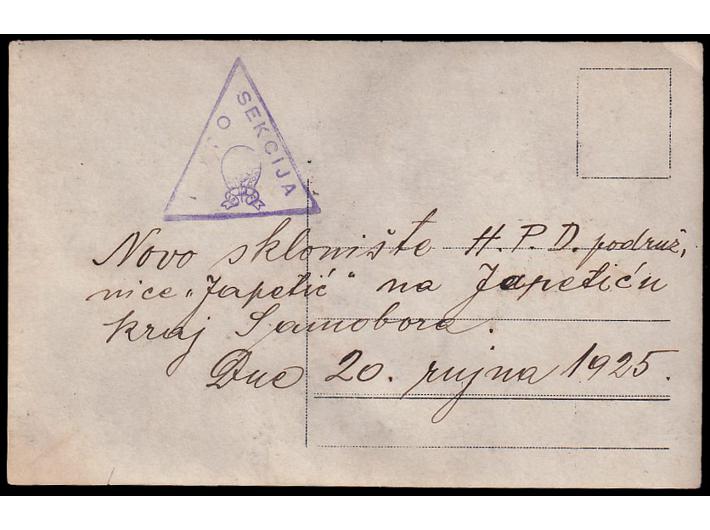 SEKCIJA
Novo sklonište H.P.D. podruž,
nice „Japetić“ na Japetiću
kraj Samobora.
Dne 20. rujna 1925.